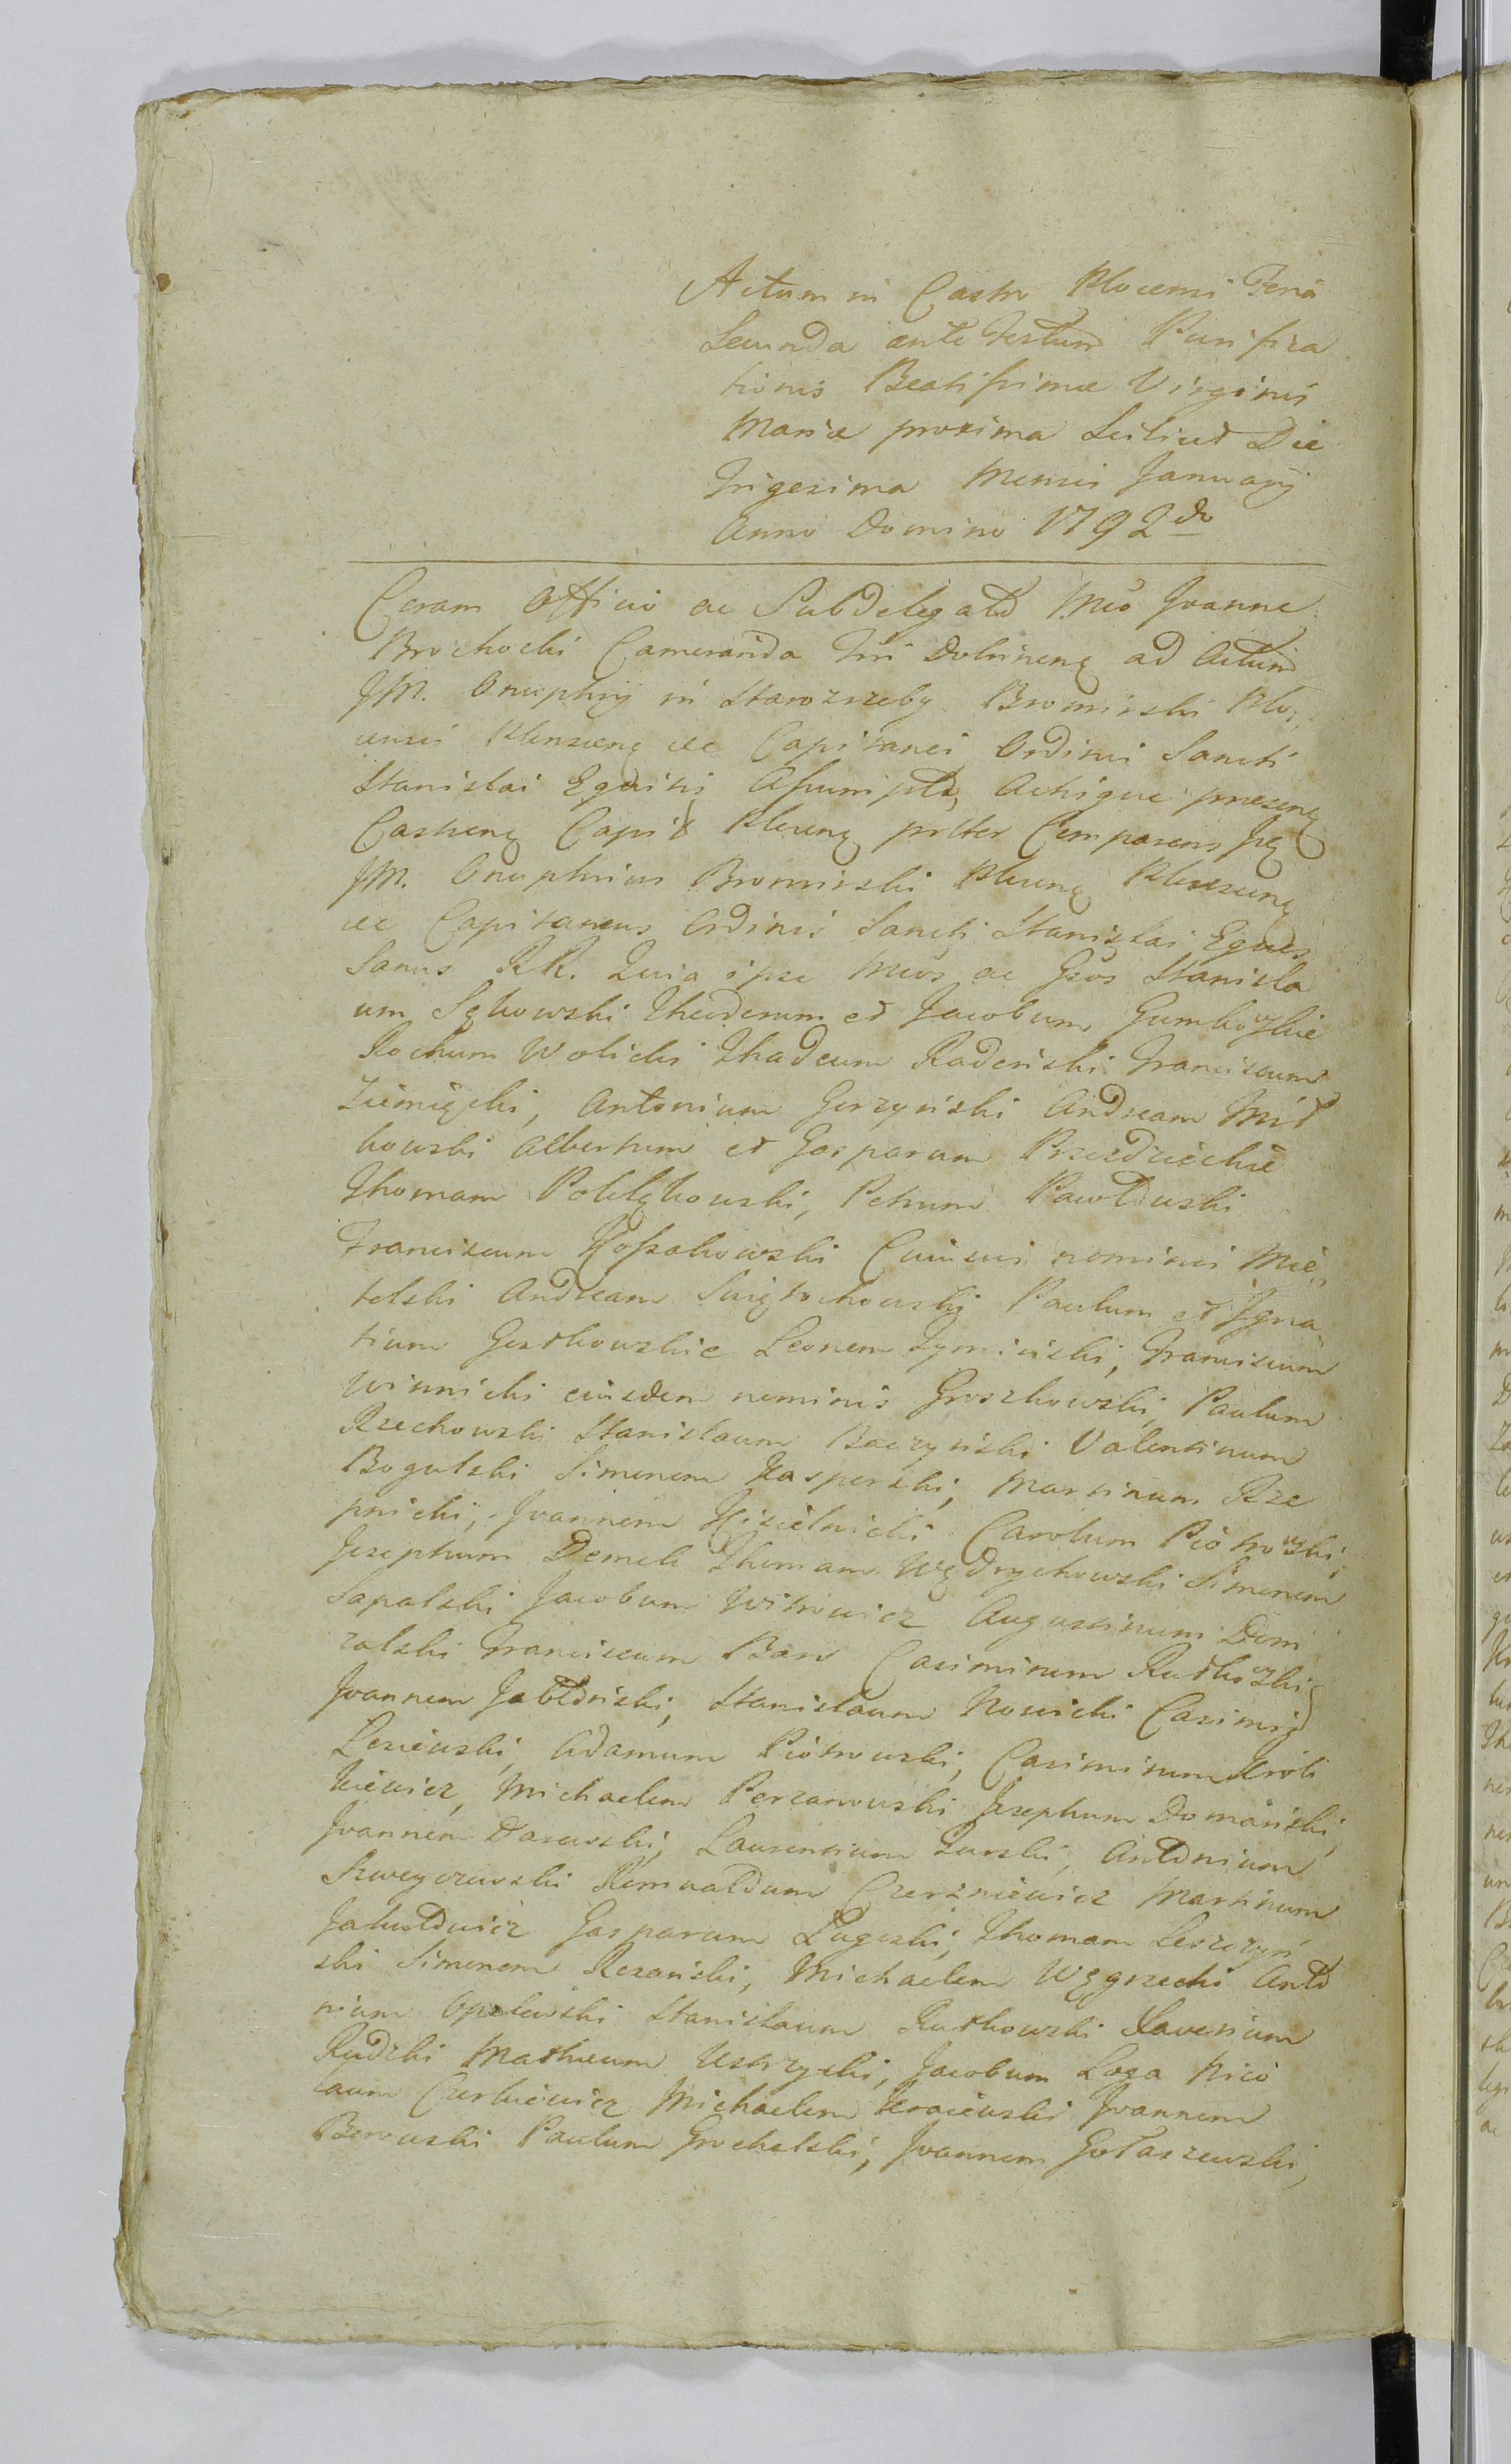 Actum in Castro Plocensi Feria
Secunda ante Festum Purifica
tionis Beatissimæ Virginis
Mariæ proxima Scilicet Die
Trigesima Mensis Januarij
Anno Domino 1792do
Coram Officio ac Subdelegato Mco Joanne
Brochocki Camerarida Tri Dobrinen ad Actum
JM. Onuphrij in Starozrzeby Bromirski Plo,
censis Plonscen etc Capitanei Ordinis Sancti
Stanislai Equitis Assumpto, Actisque præsen
Castren Capit Plocen prlter Comparens
JM. Onuphrius Bromirski Plocen Plonscen
etc Capitaneus Ordinis Sancti Stanislai Eques
Sanus RR. Quia ipse Mcos ac Gsos Stanisla
um Sękowski Theodorum et Jacobum Gumkowskie
Rochum Wolicki Thadeum Radeński Franciscum
Ziemięcki, Antonium Gorzyński Andream Mił
kowski Albertum et Gasparum Przedzieckie
Thomam Poklękowski, Petrum Pawłowski
Franciscum Kossakowski Cuiusvis nominis Mie,,
telski Andream Swiętochowski Paulum et Igna,,
tium Gostkowskie Leonem Zymiński, Franciscum
Winnicki eiusdem nominis Groszkowski, Paulum
Rzechowski Stanislaum Baczyński Valentinum
Bogulski Simonem Kasperski, Martinum Rze
pnicki, Joannem Kisielnicki Carolum Piotrowski,
Josephum Demeli Thomam Wędrychowski Simonem
Sapalski Jacobum Witrowicz Augustinum Dom
ralski Franciscum Baro Casimirum Rutkowski
Joannem Jabłoński, Stanislaum Nowicki Casimir
Lesiewski, Adamum Piotrowski, Casimirum Król
kiewicz, Michaelem Perzanowski Josephum Domański,
Joannem Darewski, Laurentium Zurski, Antonium
Szwejczewski Romualdum Czerzniewicz Martinum
Jakubowicz Gasparum Zugeski, Thomam Leszczyń
ski Simonem Rezański, Michaelem Węgrzecki Anto
nium Opalewski Stanislaum Rutkowski Xaverium
Rudzki Matheum Ustrzycki, Jacobum Loga Nico
laum Czerkiewicz Michaelem Kraiewski Joannem
Berowski Paulum Grochalski, Joannem Gołaszewski,